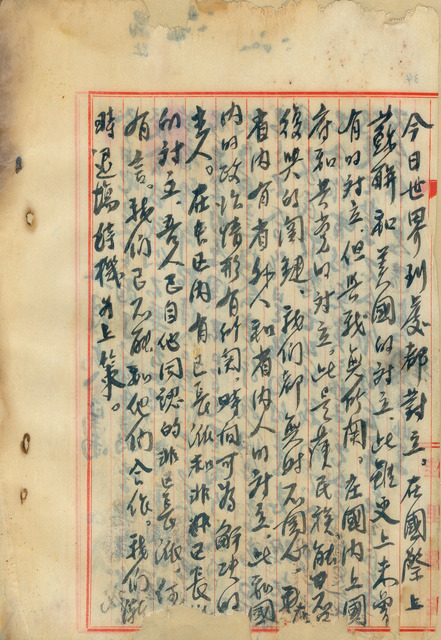 今日世界到處都對立。在國際上
蘇聯和美國的對立、此雖史上未曾
有的對立、但與我無所關。在國內上國
府和共党的對立、此是漢民族能日否
復興的關鍵、我们都無時不關心、我在
省內有省外人和省內人的對立、此和國
內的政治情形有所関、時间可為解决的
老人。在长官內有已長派和非已長
的對立、吾人已自他同認的非已長派、
有言。我们已不能和他们合作。我们
時退場待機为上策。